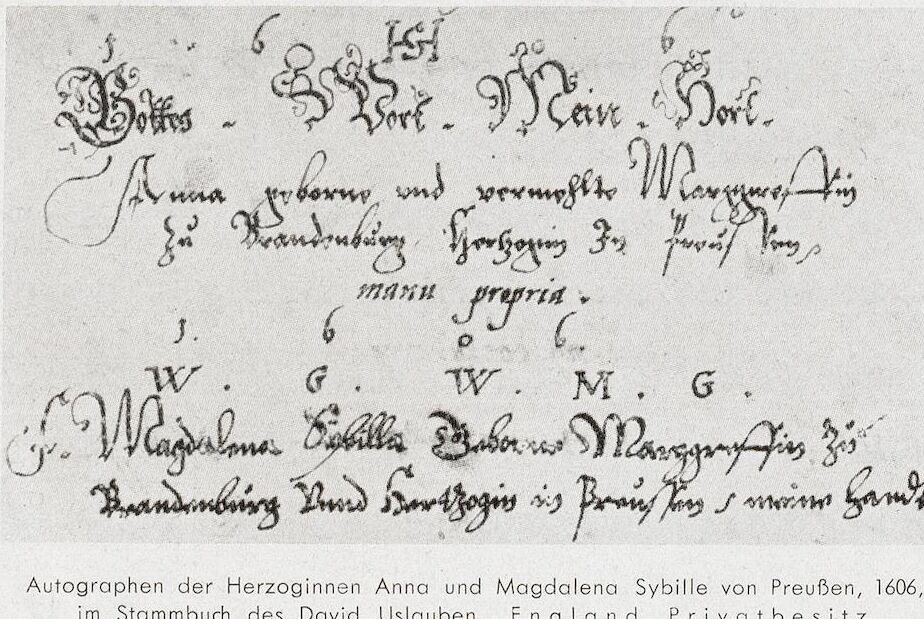 1 6 0 6
Gottes . Wort . Mein . Hort .
Anna geborne und vermehlte Marggreffin
Zu Brandenburg Hertzogin In Preussen,
manu propria .
1. 6 0 6.
W . G . W . M . G .
Magdalena Sybilla Geborne Marggreffin Zu
Brandenburg Vnnd Hertzogin in Preussen, meine Handt
Autographen der Herzoginnen Anna und Magdalena Sybille von Preußen, 1606,
im Stammbuch des David Uslauben. England Privatbesitz